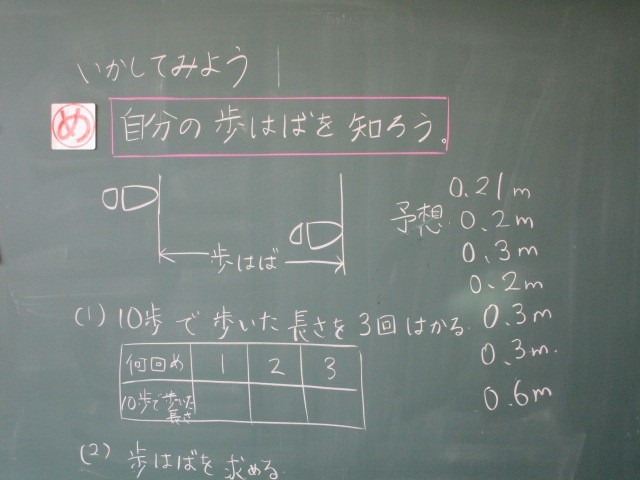 いかしてみよう
め 自分の歩はばを知ろう。
歩はば
予想
0.21m
0.2m
0.3m
0.2m
0.3m
0.3m.
0.6m
(1) 10歩で歩いた長さを3回はかる
何回め 1 2 3
10歩で歩いた
長さ
(2) 歩はばを求める